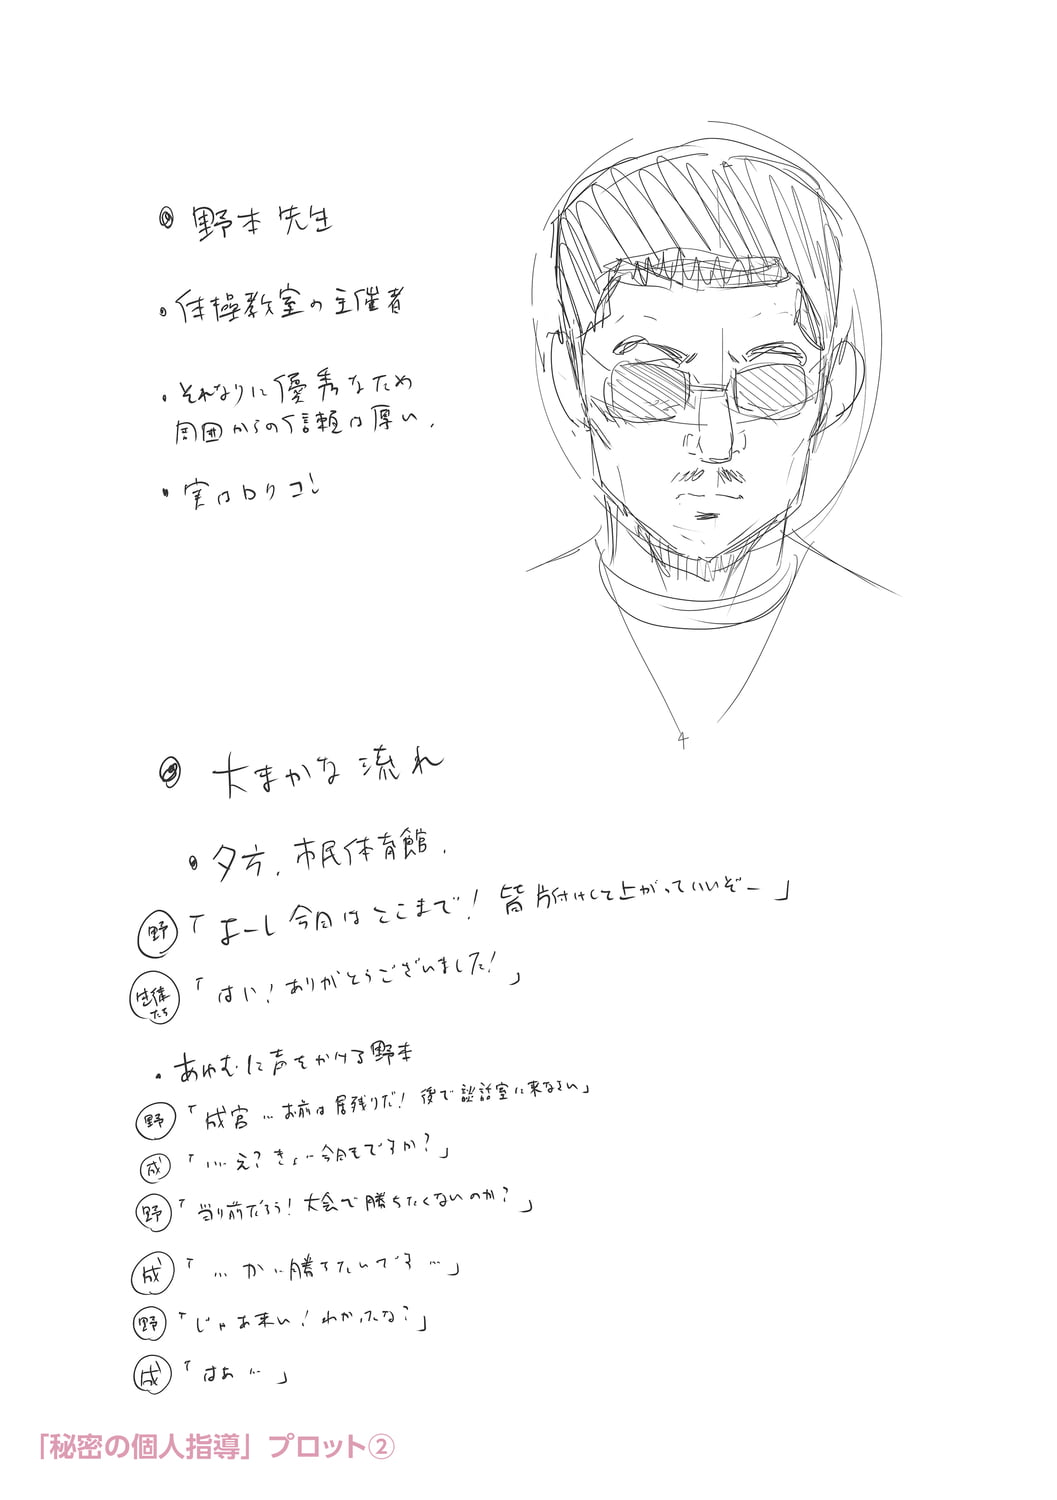 野本先生
・体操教室の主催者
・それなりに優秀なため
周囲からの信頼は厚い.
・実はロリコン
大まかな流れ
・夕方.市民体育館.
野「よーし今日はここまで!皆片付けして上がっていいぞー」
生徒たち「はい!ありがとうございました!」
・あゆむに声をかける野本
野「成宮…お前は居残りだ!後で談話室に来なさい」
成「…え?きょ…今日もですか?」
野「当り前だろう!大会で勝ちたくないのか?」
成「…か…勝ちたいです…」
野「じゃあ来い!わかったな?」
成「はぁ…」
「秘密の個人指導」プロット②